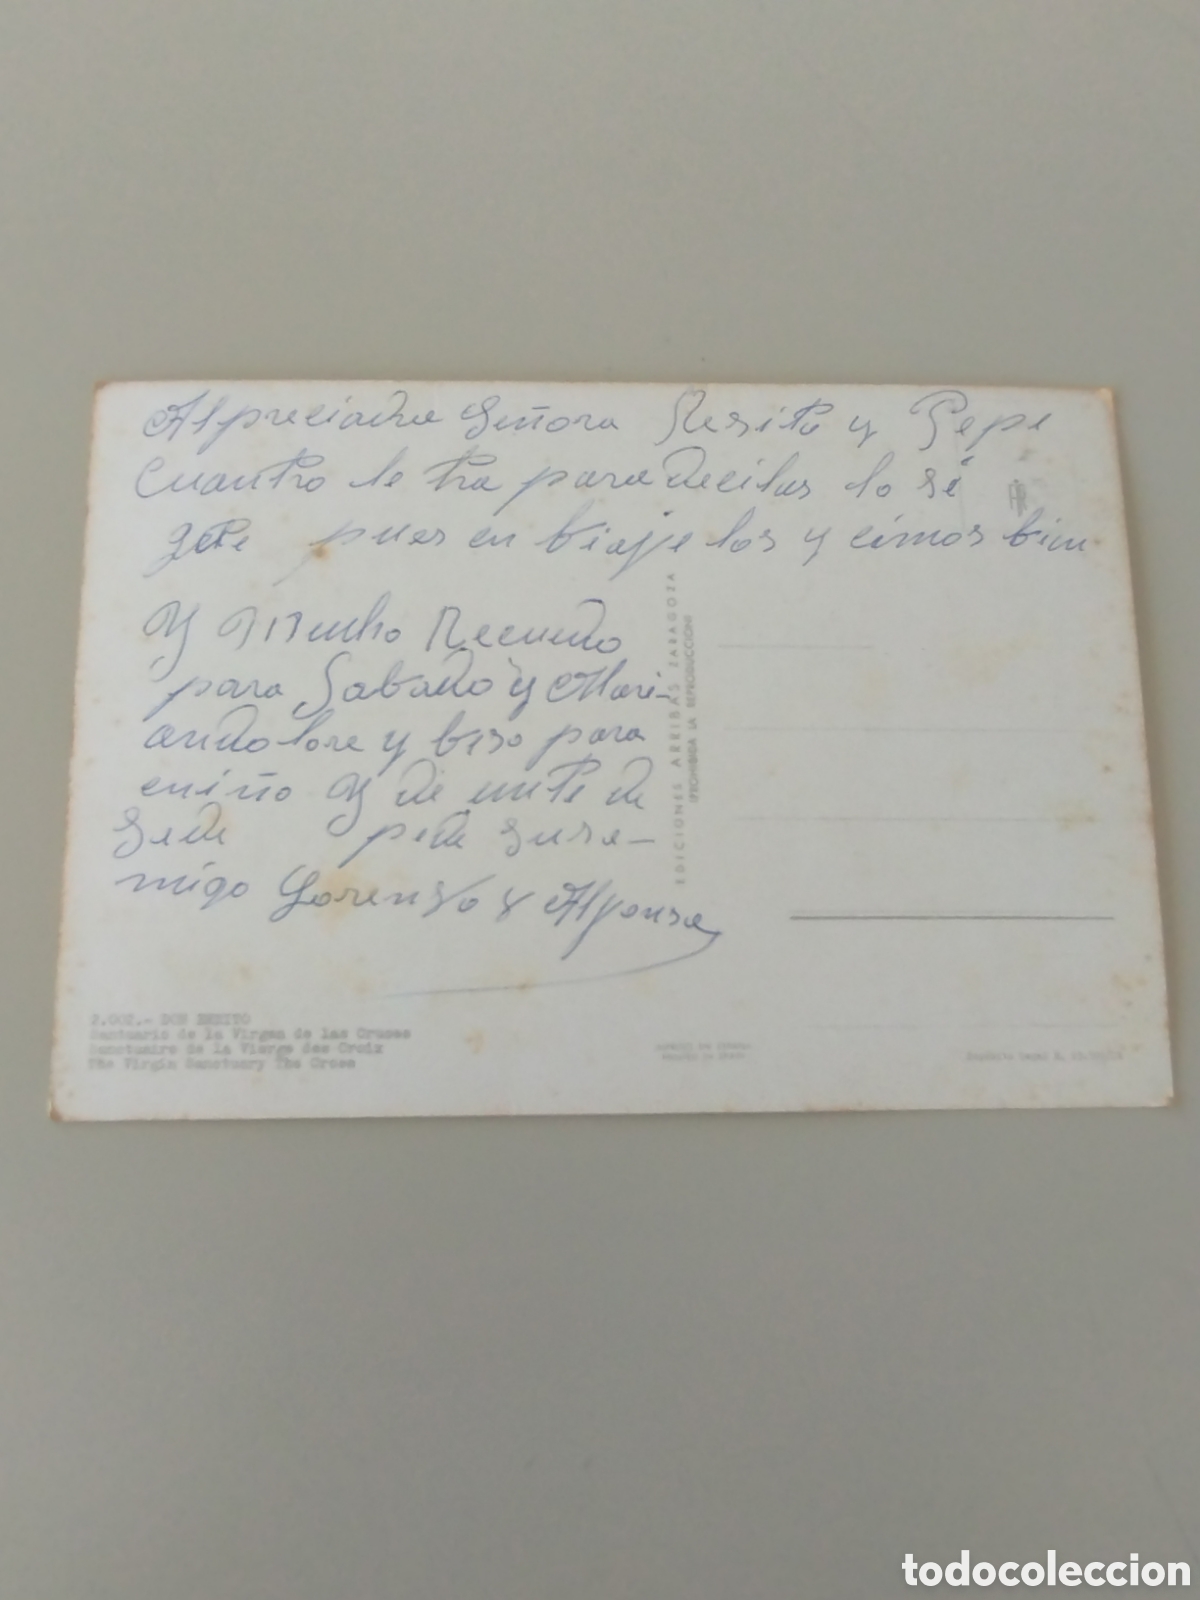 Alpreciadra Señora Resito y Pepe
Cuantro le tra para decilas lo sé
gte pues en biaje los y cimos bien
Y Mucho Recuedo
para Sabado y Mari-
andolore y beso para
eniño Y de
Sede pede susa-
migo Lorenso y Alfonsa
EDICIONES ARRIBAS ZARAGOZA
(PROHIBIDA LA REPRODUCCION)
2.002.- DON BENITO
Santuario de la Virgen de las Cruces
Sanctuaire de la Vierge des Croix
The Virgin Sanctuary The Cross
todocoleccion